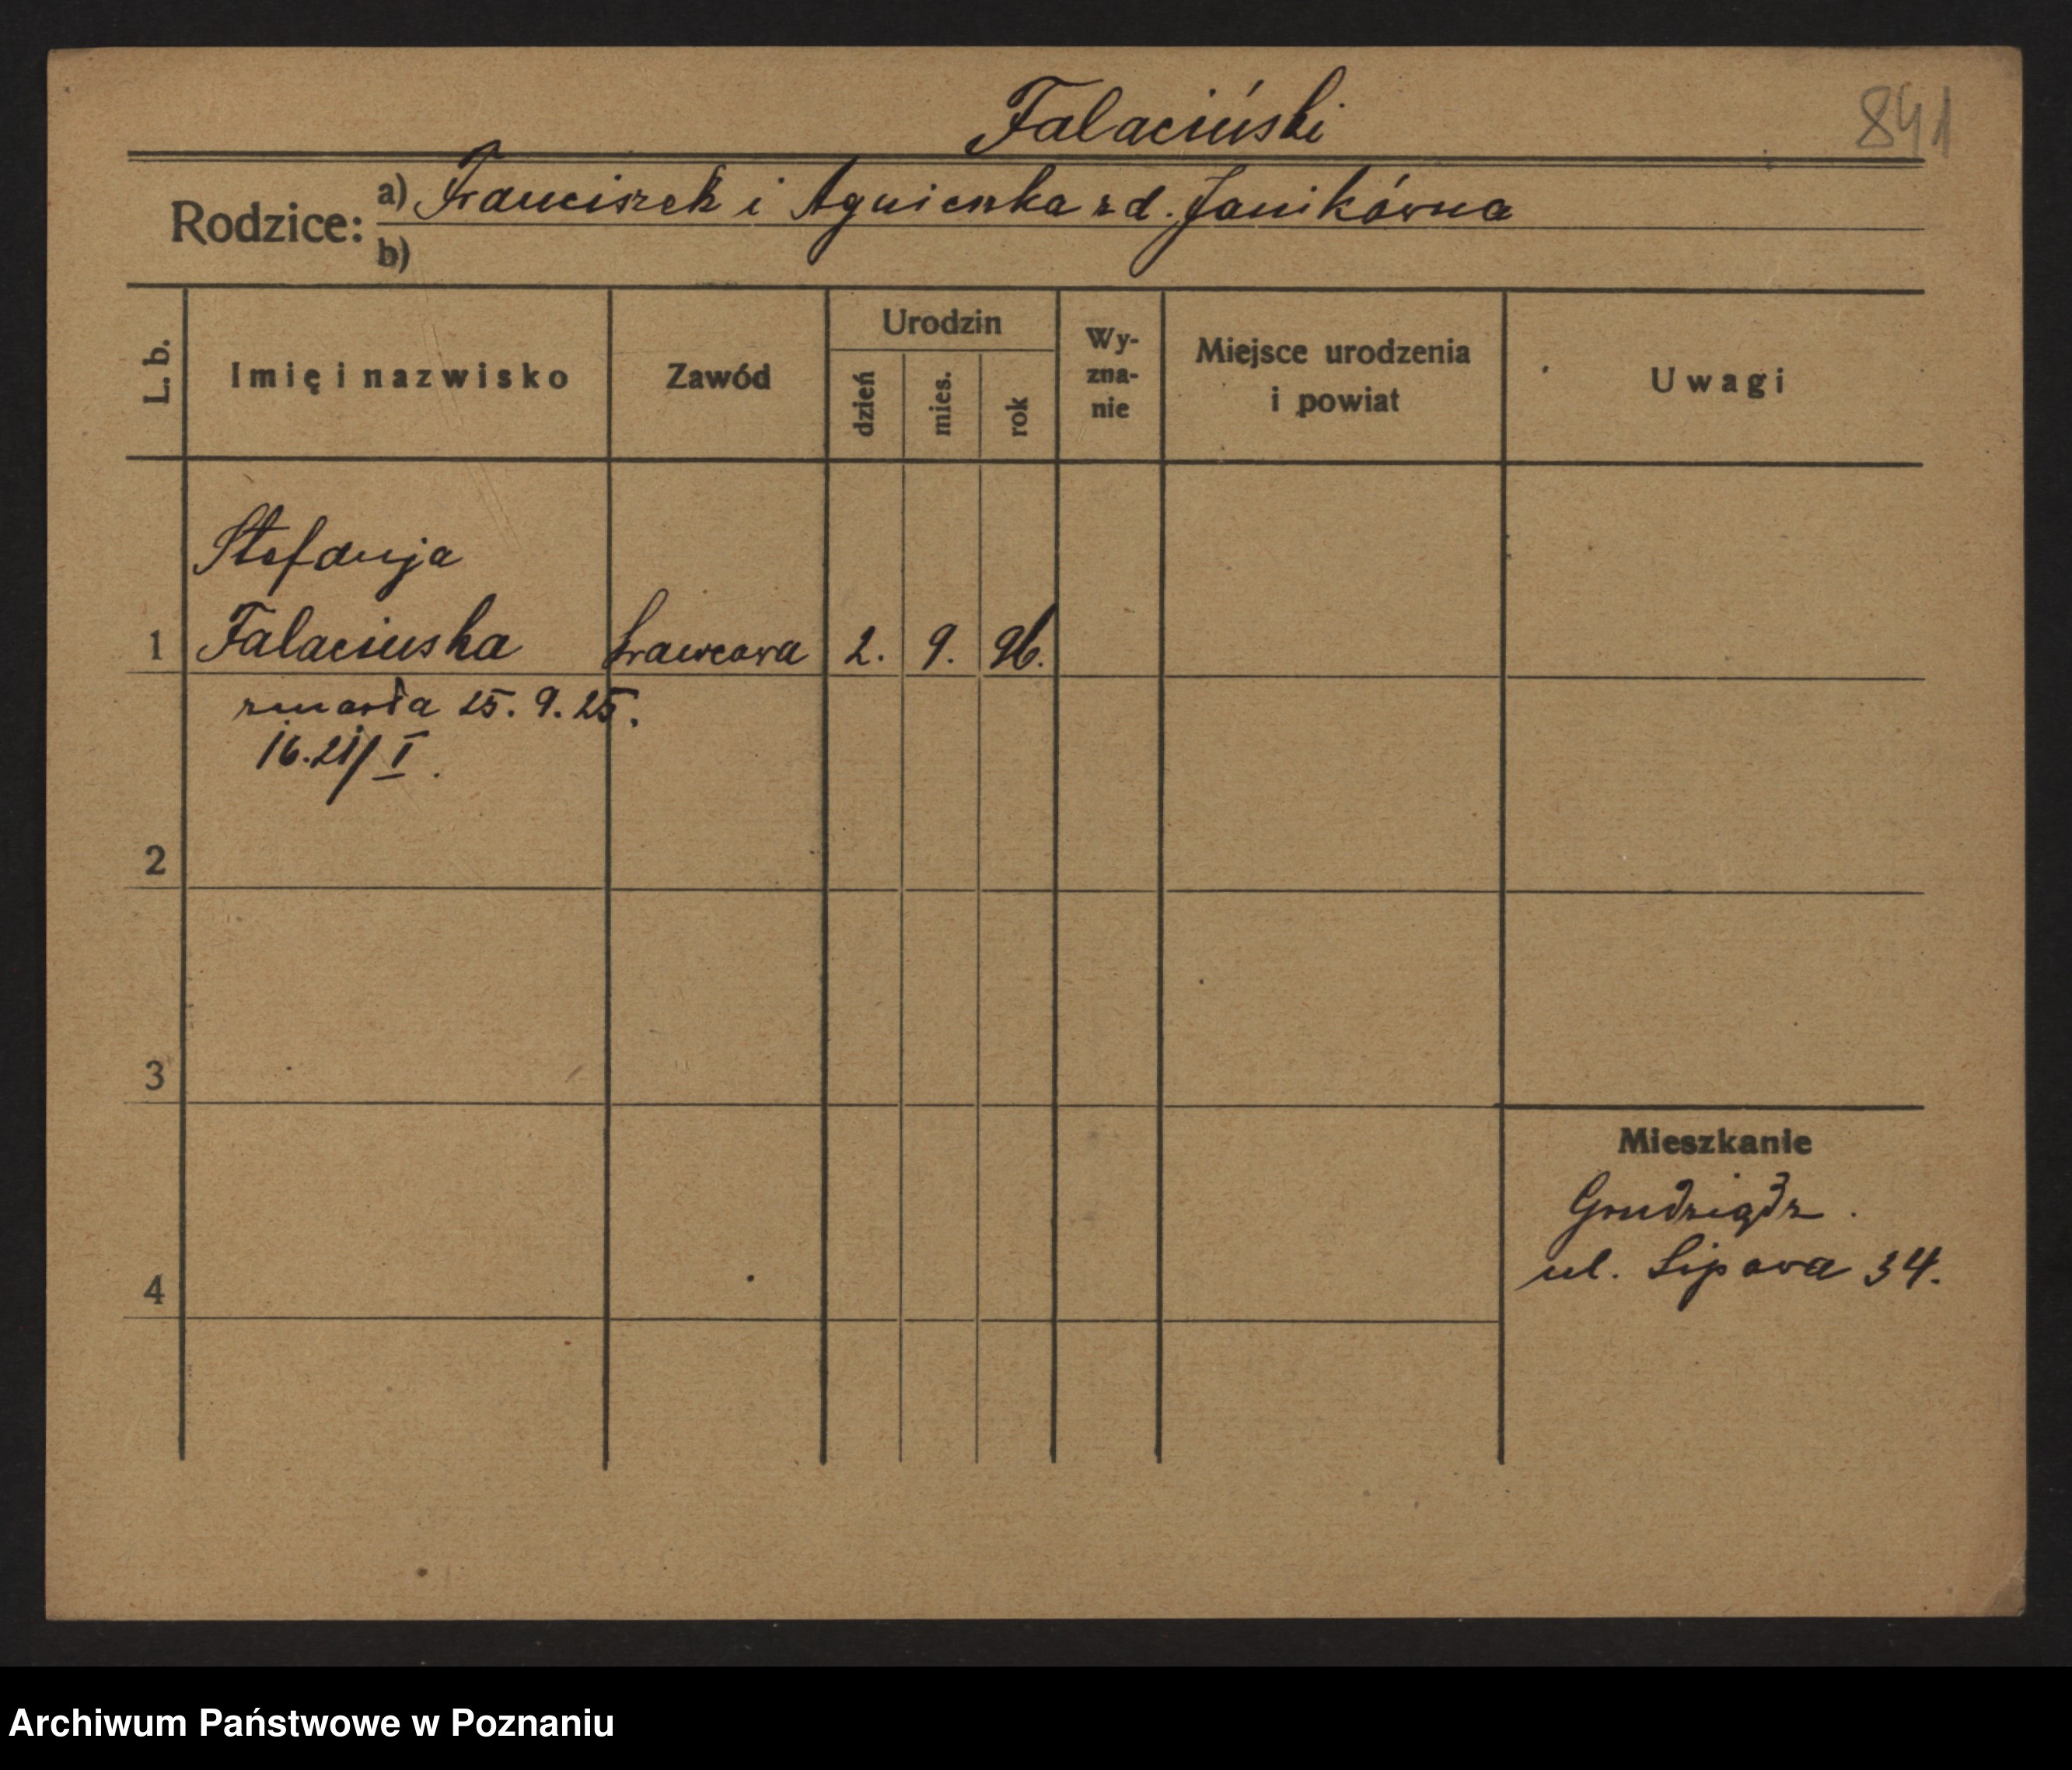 Falaciński
841
Rodzice: a) Franciszek i Agnieszka zd. Janikówna
b)
L. b.
Imię i nazwisko
Zawód
Urodzin
dzień
mies.
rok
Wy-
zna-
nie
Miejsce urodzenia
i powiat
Uwagi
Stefanja
1 Falacinska krawcowa 2. 9. 96.
zmarła 25. 9. 25.
16.21/I.
2
3
Mieszkanie
Grudziądz.
ul. Lipowa 34.
4
Archiwum Państwowe w Poznaniu